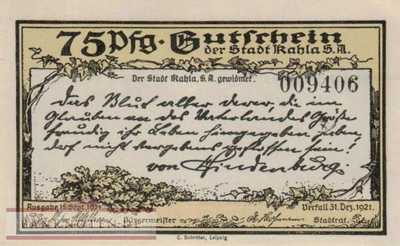 75 Pfg. Gutschein
der Stadt Kahla S.A.
Der Stadt Kahla, S.A. gewidmet.
009406
Das Blut aller derer, die im
Glauben an des Vaterlandes Größe
freudig ihr Leben hingegeben haben,
darf nicht vergebens geflossen sein!
von Hindenburg.
Ausgabe 15. Sept. 1921.
Verfall 31. Dez. 1921.
Bürgermeister
Stadtrat.
C. Schröter, Leipzig